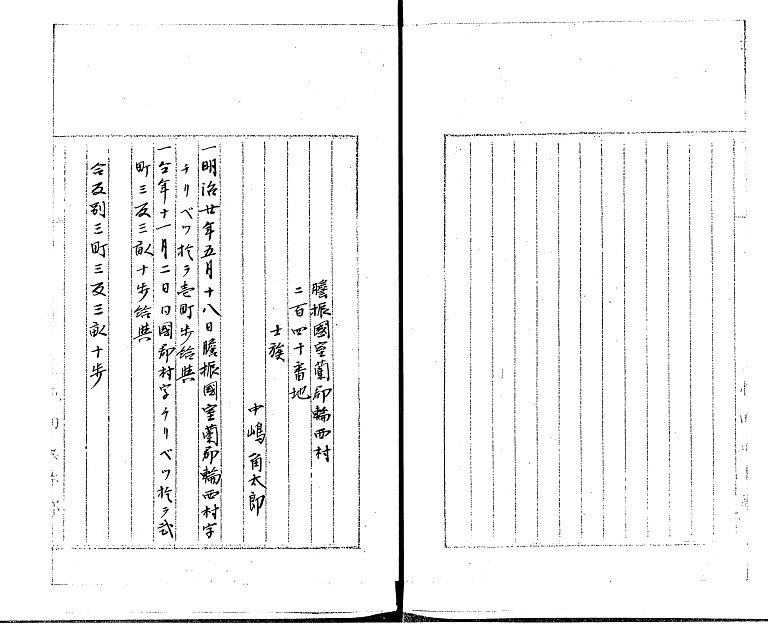 膽振國室蘭郡輪西村
二百四十番地
士族
中嶋角太郎
一明治廿年五月十八日膽振國室蘭郡輪西村字
チリベツ於ヲ壱町歩給與
一仝年十一月二日同國郡村字チリベツ於ヲ弐
町三反三畝十歩給與
合反別三町三反三畝十歩